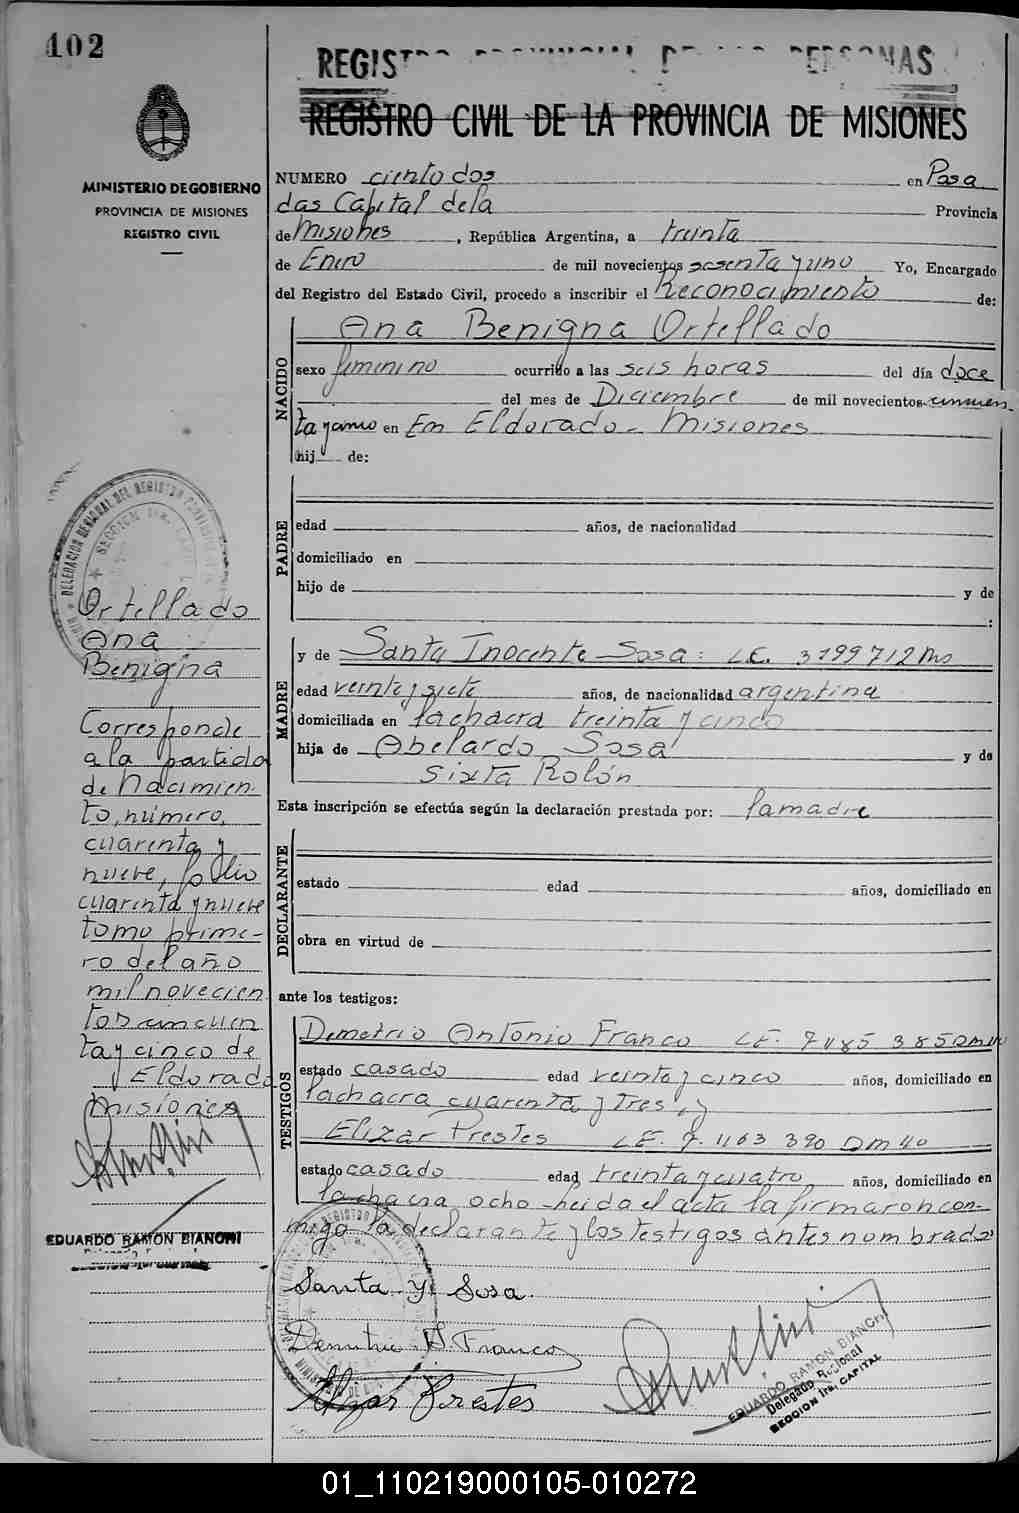 102
MINISTERIO DE GOBIERNO
PROVINCIA DE MISIONES
REGISTRO CIVIL
Ortellado
Ana
Benigna
Corresponde
a la partida
de Nacimien-
to, número,
cuarenta y
nueve, folio
cuarenta y nueve
tomo prime-
ro del año
mil novecien
tos cincuen
ta y cinco de
Eldorado
Misiones
EDUARDO RAMON BIANCHI
REGISTRO PROVINCIAL DE LAS PERSONAS
REGISTRO CIVIL DE LA PROVINCIA DE MISIONES
NUMERO ciento dos en Posa
das Capital de la Provincia
de Misiones, República Argentina, a treinta
de Enero de mil novecientos sesenta y uno Yo, Encargado
del Registro del Estado Civil, procedo a inscribir el Reconocimiento de:
NACIDO
Ana Benigna Ortellado
sexo femenino ocurrido a las seis horas del día doce
del mes de Diciembre de mil novecientos cincuen
ta y cinco en Em Eldorado - Misiones
hij de:
PADRE
edad años, de nacionalidad
domiciliado en
hijo de y de
:
MADRE
y de Santa Inocente Sosa: L.C. 3199712 Ms
edad veinte y siete años, de nacionalidad argentina
domiciliada en la chacra treinta y cinco
hija de Abelardo Sosa y de
Sixta Rolón
Esta inscripción se efectúa según la declaración prestada por: la madre
DECLARANTE
estado edad años, domiciliado en
obra en virtud de
ante los testigos:
TESTIGOS
Demetrio Antonio Franco L.E. 385 DM
estado casado edad veinte y cinco años, domiciliado en
la chacra cuarenta y tres, y
Elizar Prestes L.E. 7. 1163 390 DM 40
estado casado edad treinta y cuatro años, domiciliado en
la chacra ocho leida el acta la firmaron con-
migo la declarante y los testigos antes nombrados
Santa Y. Sosa.
Demetrio A. Franco
Elizar Prestes
EDUARDO RAMON BIANCHI
Delegado Regional
SECCION 1ra. CAPITAL
01_110219000105-010272